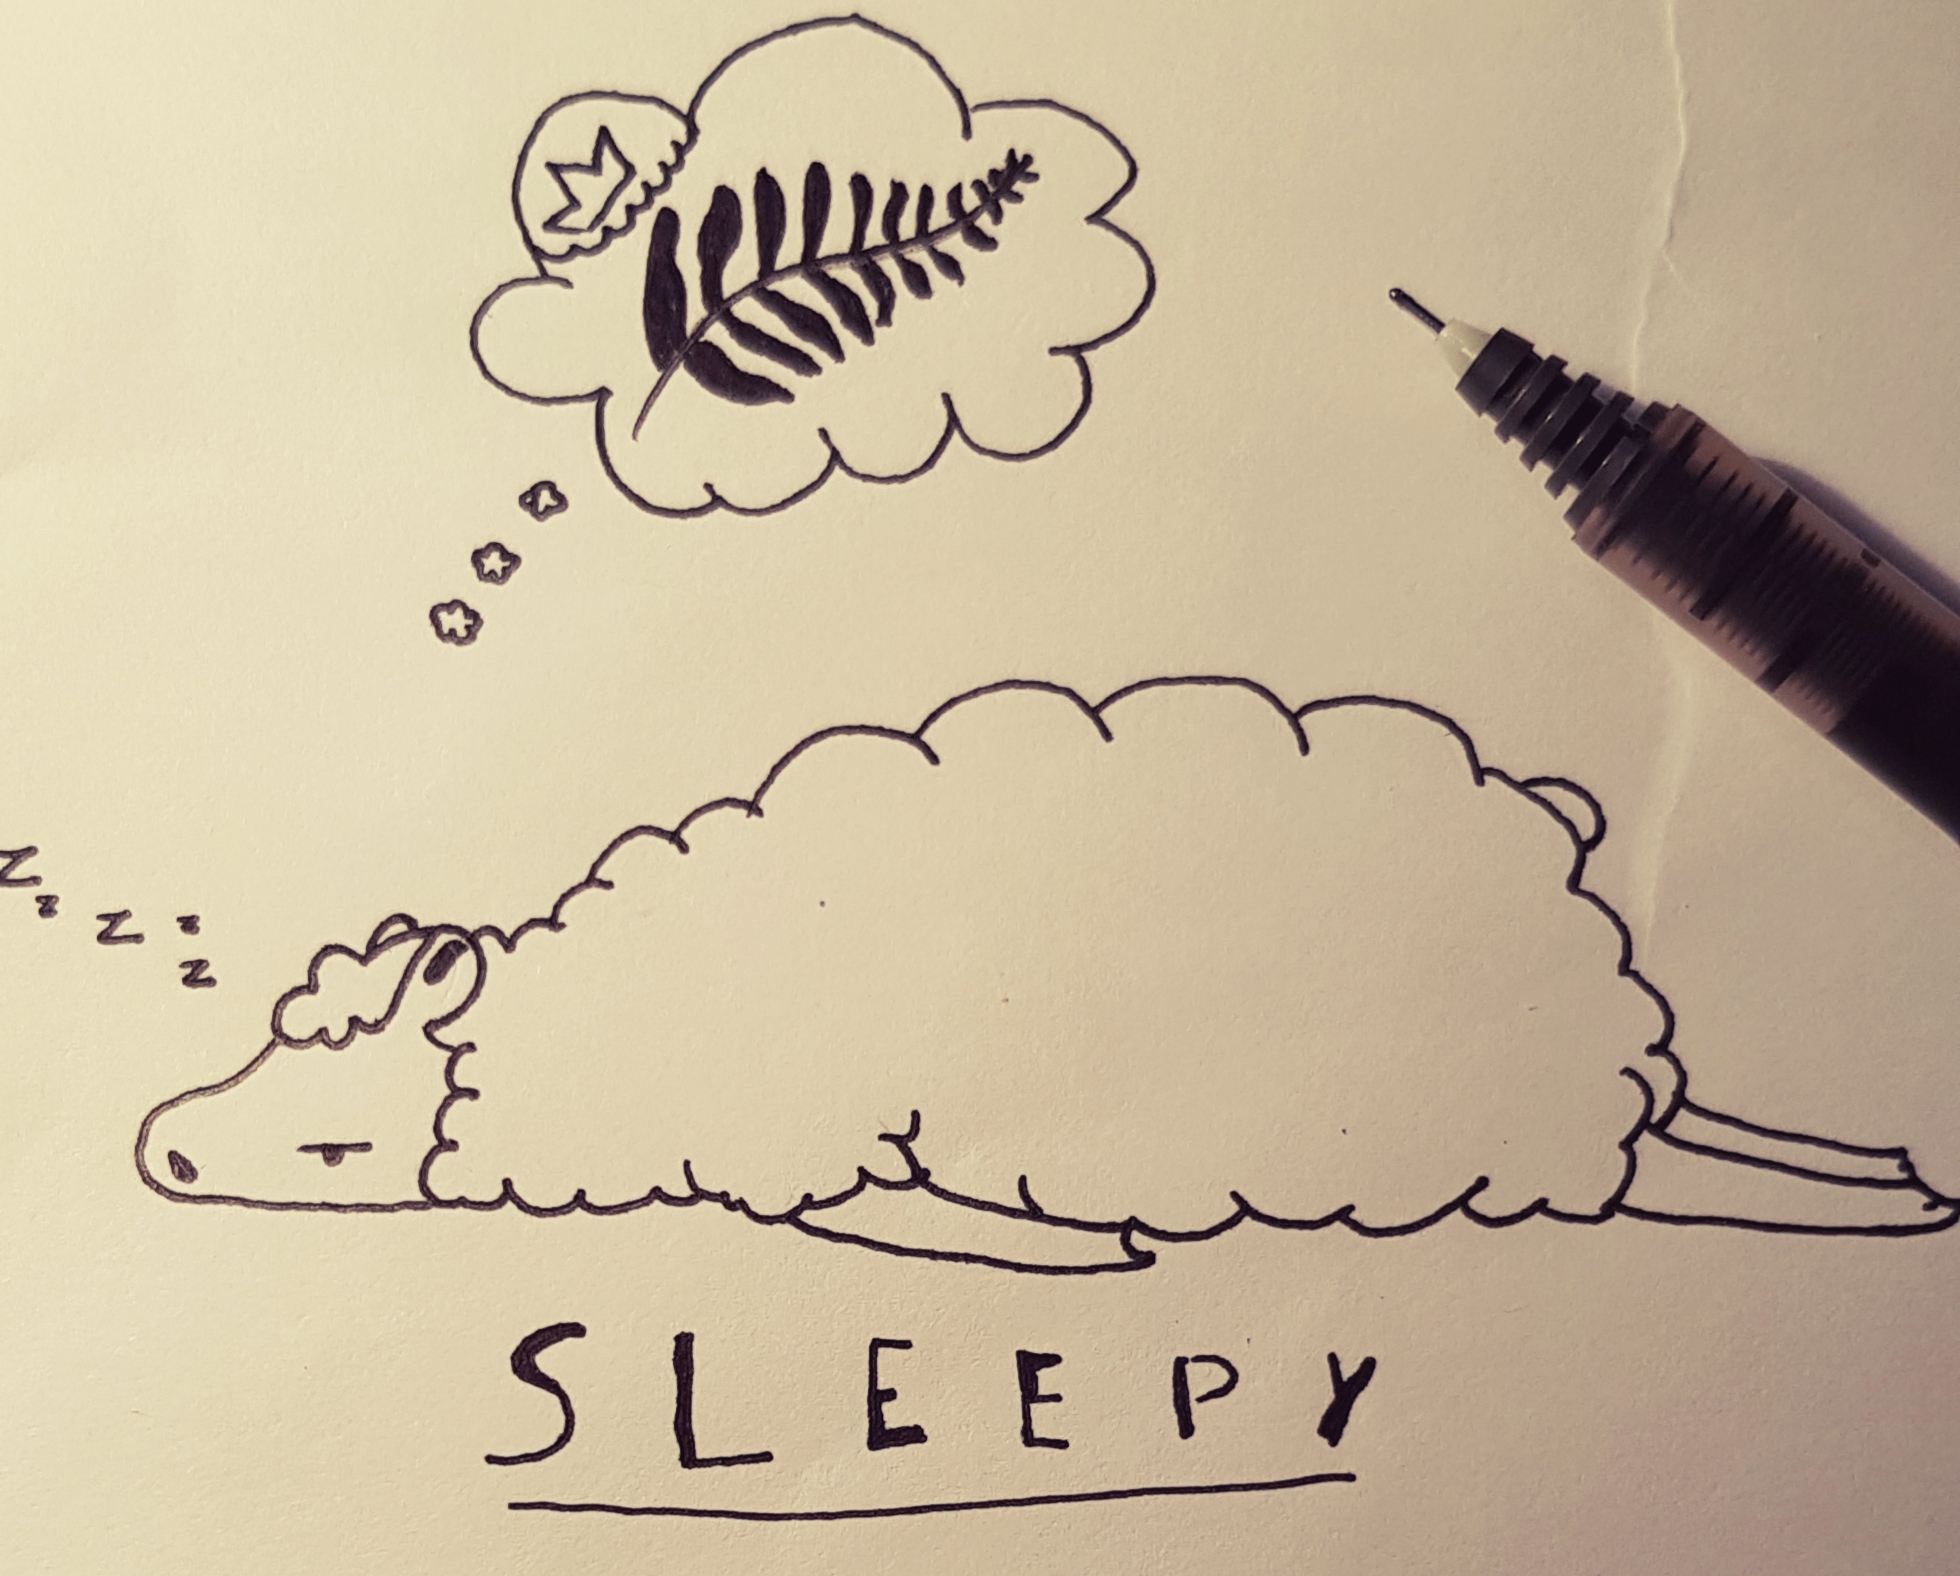 z z z z z
SLEEPY